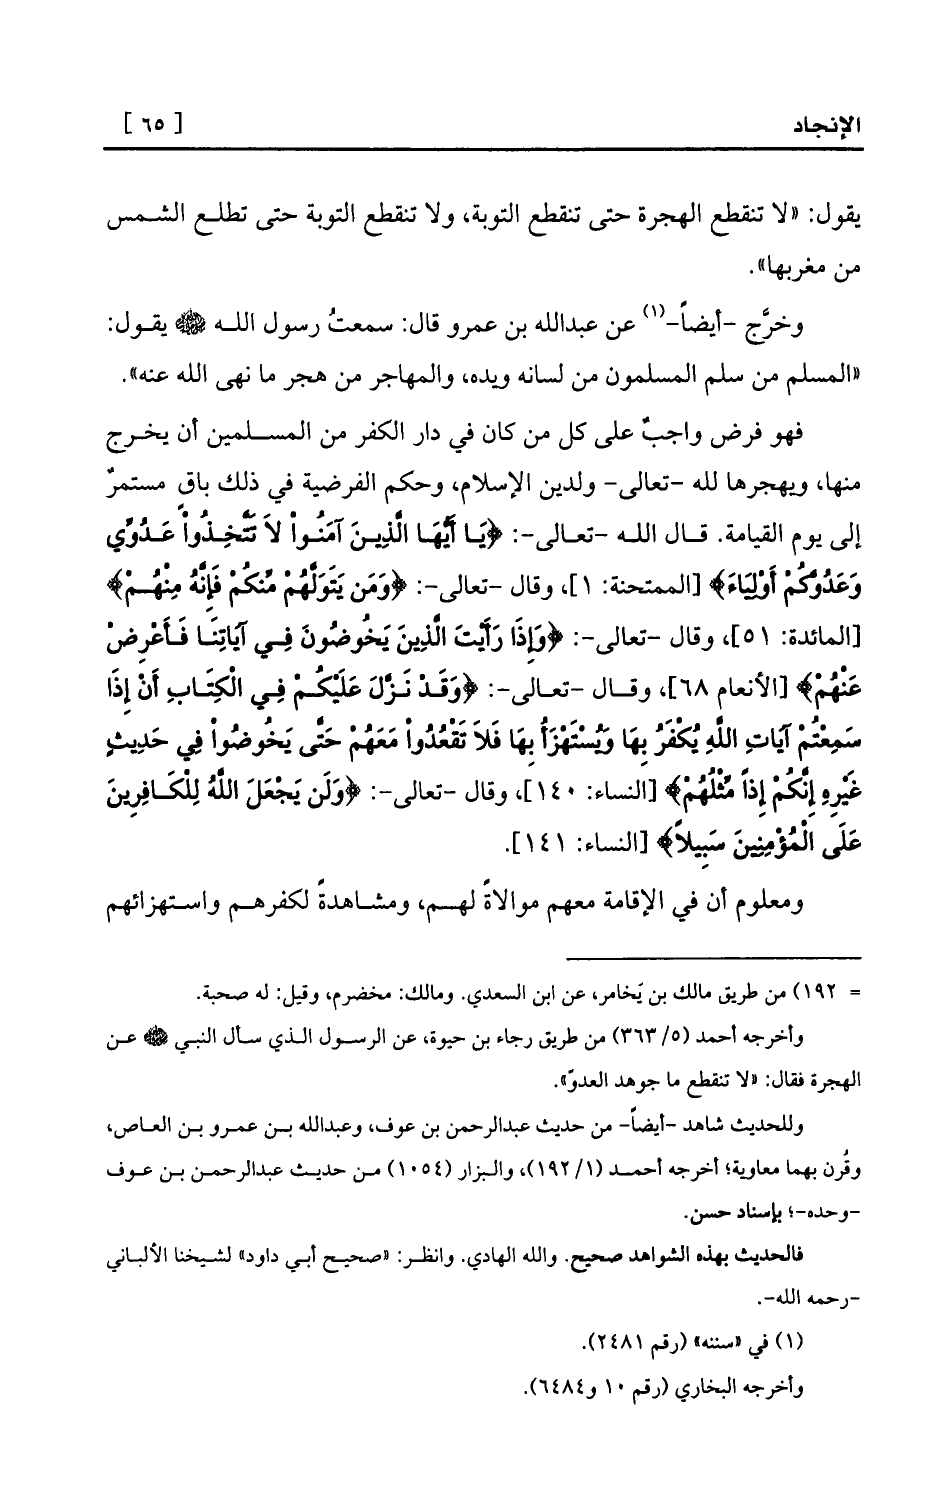 الإنجاد [ ٦٥ ]
يقول: «لا تنقطع الهجرة حتى تنقطع التوبة، ولا تنقطع التوبة حتى تطلع الشمس
من مغربها».
وخرَّج -أيضاً-(١) عن عبدالله بن عمرو قال: سمعتُ رسول الله ﷺ يقول:
«المسلم من سلم المسلمون من لسانه ويده، والمهاجر من هجر ما نهى الله عنه».
فهو فرض واجبٌ على كل من كان في دار الكفر من المسلمين أن يخرج
منها، ويهجرها لله -تعالى- ولدين الإسلام، وحكم الفرضية في ذلك باقٍ مستمرٌ
إلى يوم القيامة. قال الله -تعالى-: ﴿يَا أَيُّهَا الَّذِينَ آمَنُواْ لاَ تَتَّخِذُواْ عَدُوِّي
وَعَدُوَّكُمْ أَوْلِيَاءَ﴾ [الممتحنة: ١]، وقال -تعالى-: ﴿وَمَن يَتَوَلَّهُمْ مِّنكُمْ فَإِنَّهُ مِنْهُمْ﴾
[المائدة: ٥١]، وقال -تعالى-: ﴿وَإِذَا رَأَيْتَ الَّذِينَ يَخُوضُونَ فِي آيَاتِنَا فَأَعْرِضْ
عَنْهُمْ﴾ [الأنعام ٦٨]، وقال -تعالى-: ﴿وَقَدْ نَزَّلَ عَلَيْكُمْ فِي الْكِتَابِ أَنْ إِذَا
سَمِعْتُمْ آيَاتِ اللَّهِ يُكْفَرُ بِهَا وَيُسْتَهْزَأُ بِهَا فَلاَ تَقْعُدُواْ مَعَهُمْ حَتَّى يَخُوضُواْ فِي حَدِيثٍ
غَيْرِهِ إِنَّكُمْ إِذاً مِّثْلُهُمْ﴾ [النساء: ١٤٠]، وقال -تعالى-: ﴿وَلَن يَجْعَلَ اللَّهُ لِلْكَافِرِينَ
عَلَى الْمُؤْمِنِينَ سَبِيلاً﴾ [النساء: ١٤١].
ومعلوم أن في الإقامة معهم موالاةً لهم، ومشاهدةً لكفرهم واستهزائهم
= ١٩٢) من طريق مالك بن يَخامر، عن ابن السعدي. ومالك: مخضرم، وقيل: له صحبة.
وأخرجه أحمد (٥/ ٣٦٣) من طريق رجاء بن حيوة، عن الرسول الذي سأل النبي ﷺ عن
الهجرة فقال: «لا تنقطع ما جوهد العدوّ».
وللحديث شاهد -أيضاً- من حديث عبدالرحمن بن عوف، وعبدالله بن عمرو بن العاص،
وقُرن بهما معاوية؛ أخرجه أحمد (١/ ١٩٢)، والبزار (١٠٥٤) من حديث عبدالرحمن بن عوف
-وحده-؛ بإسناد حسن.
فالحديث بهذه الشواهد صحيح. والله الهادي. وانظر: «صحيح أبي داود» لشيخنا الألباني
-رحمه الله-.
(١) في «سننه» (رقم ٢٤٨١).
وأخرجه البخاري (رقم ١٠ و٦٤٨٤).